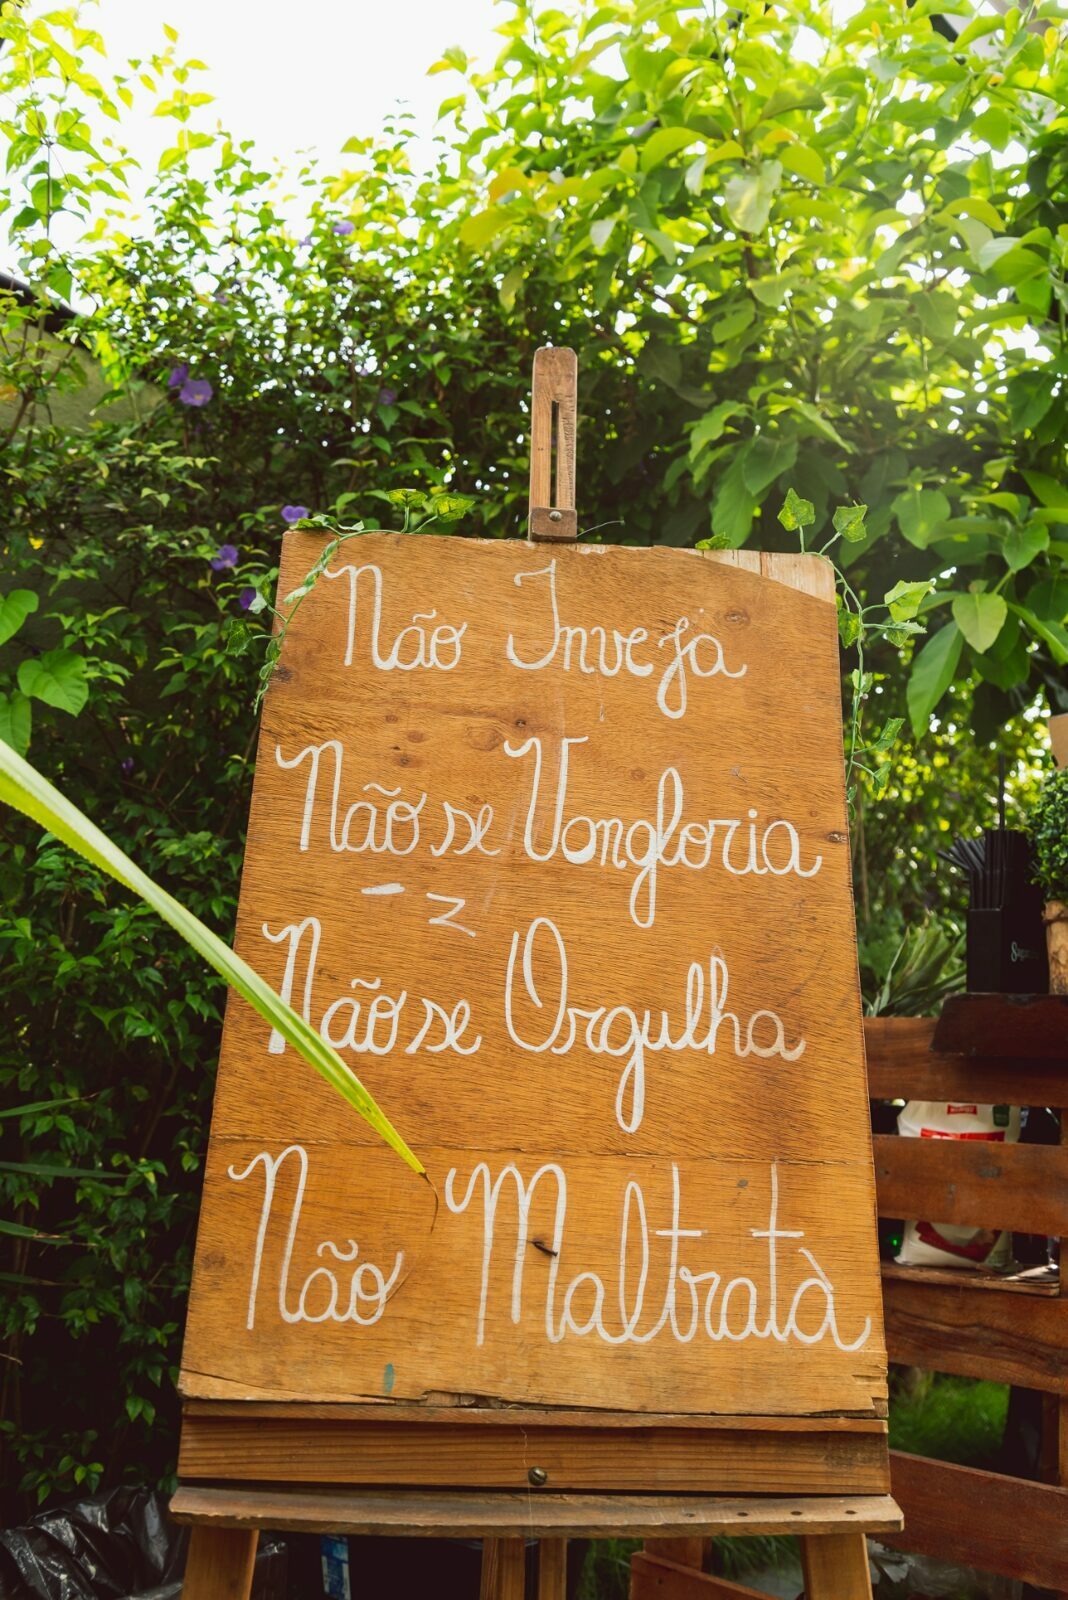 Não Inveja
Não se Vongloria
Não se Orgulha
Não Maltratà